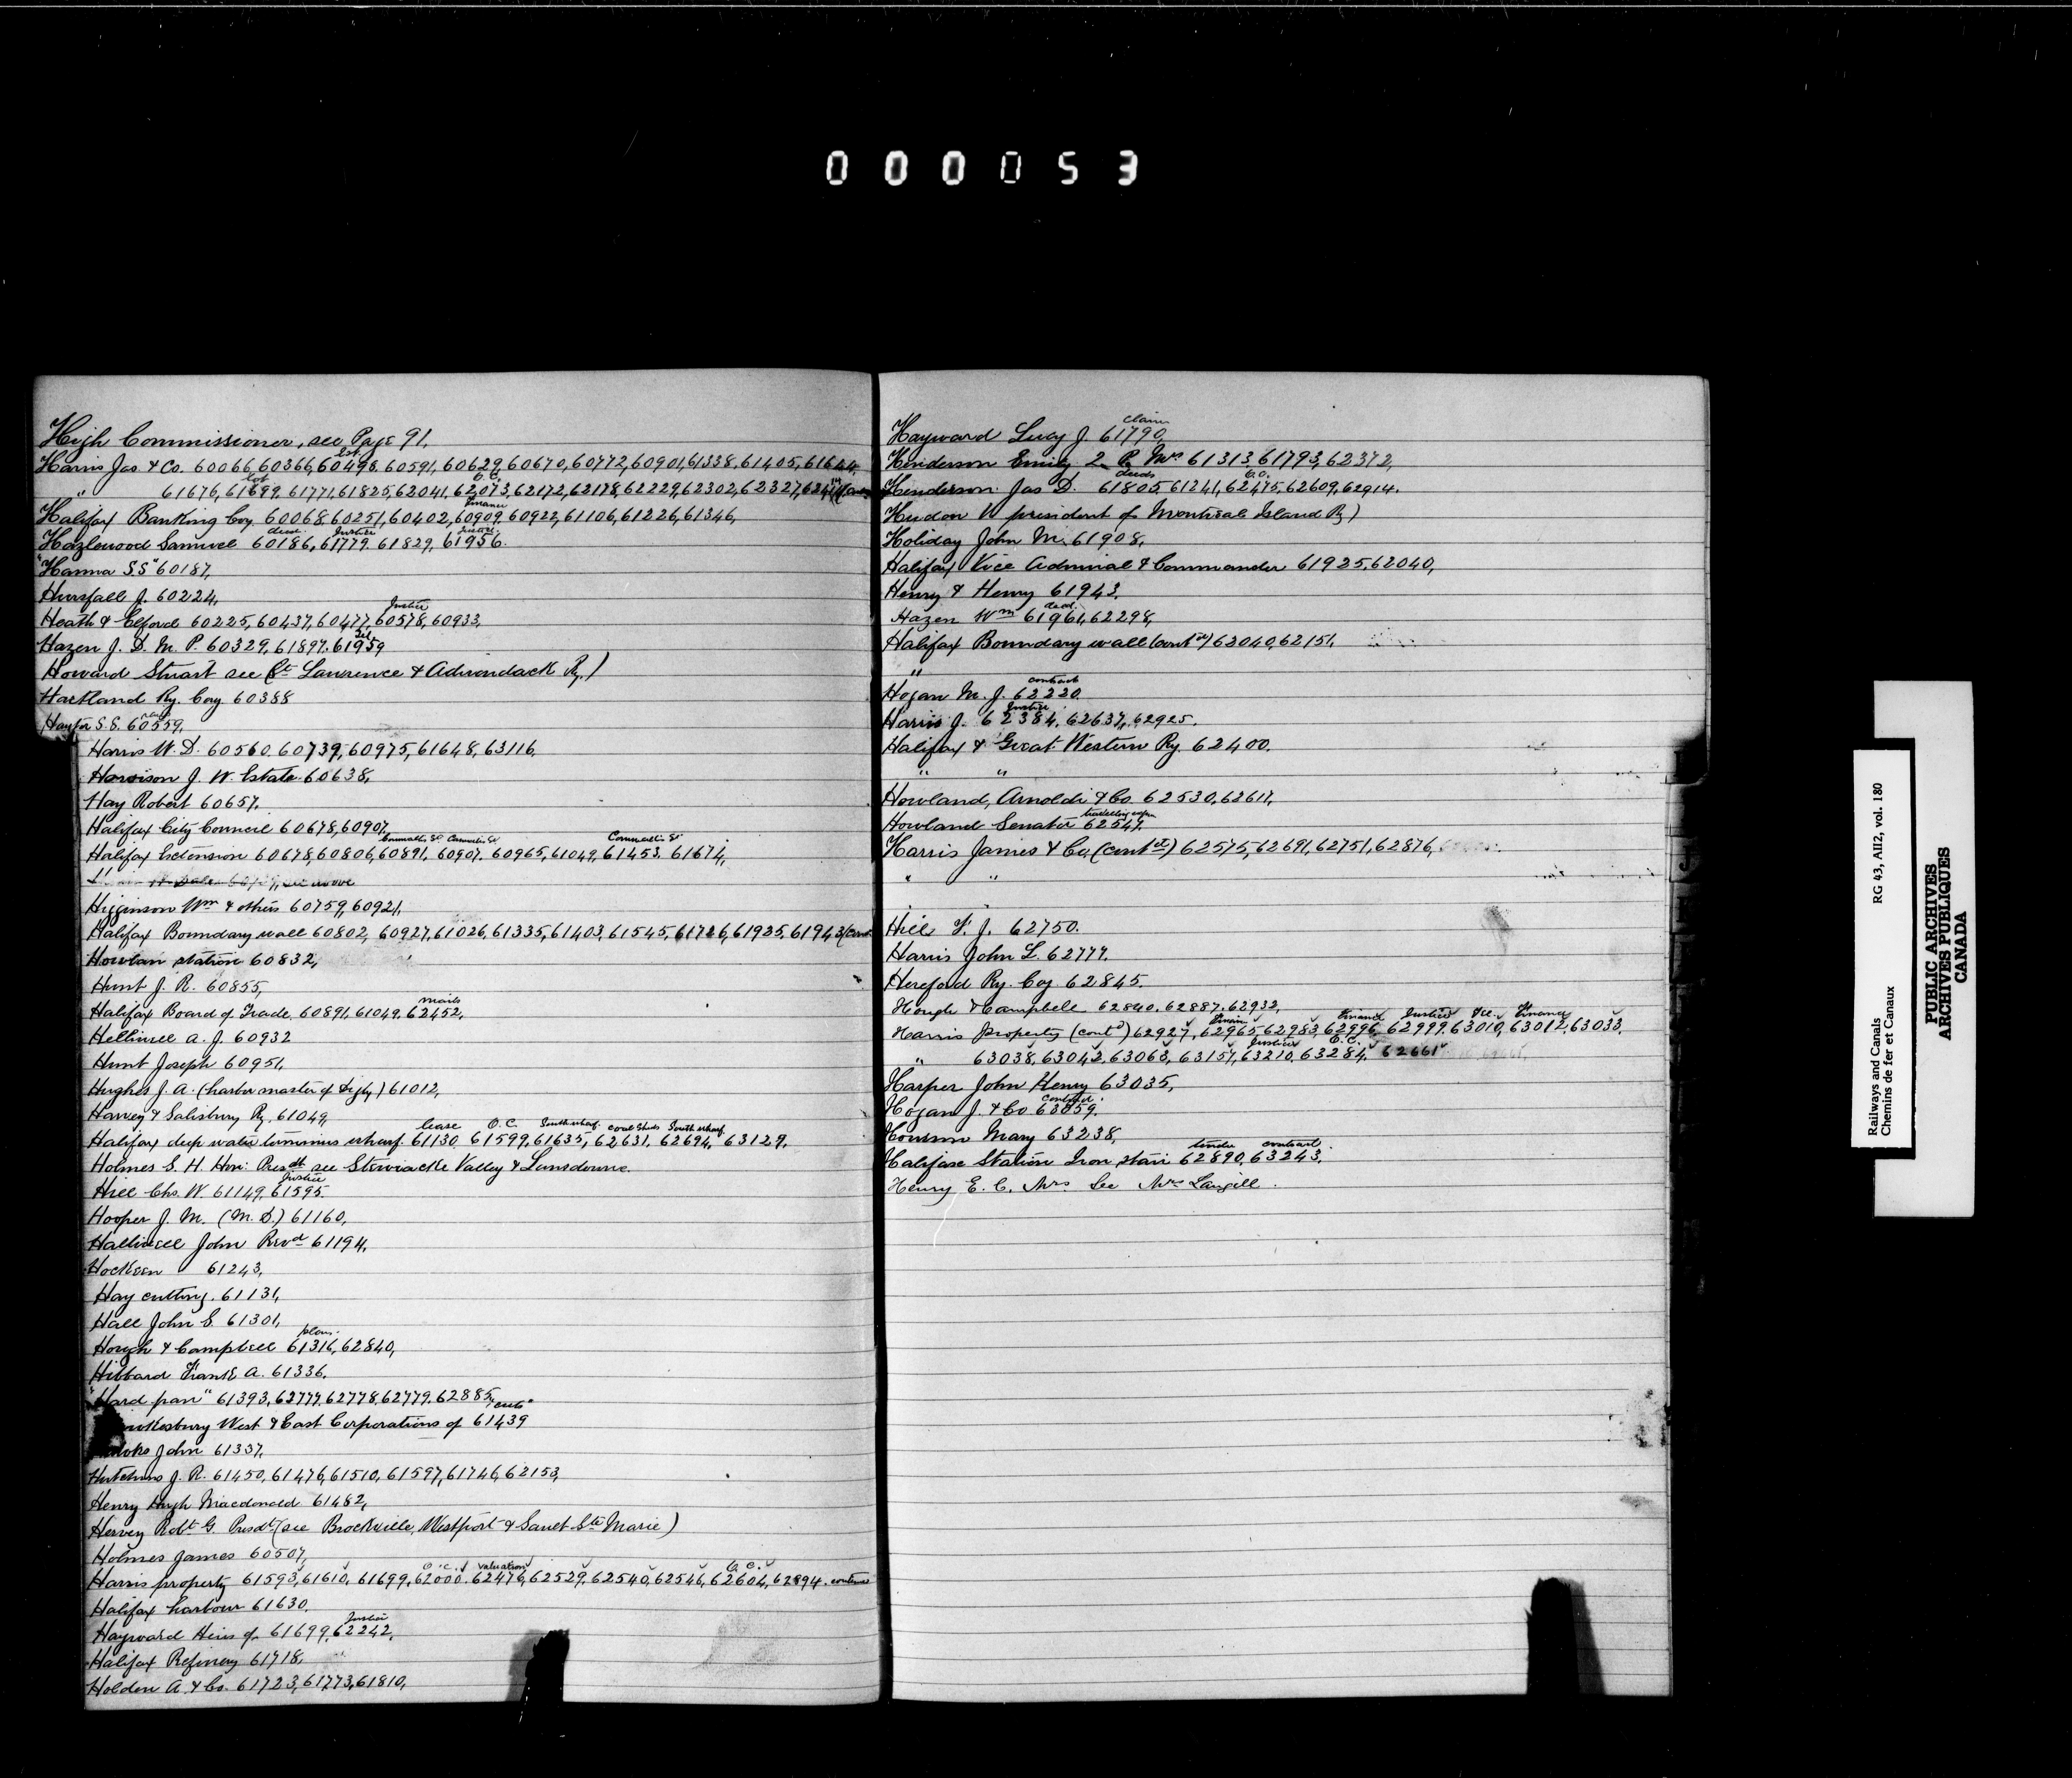 000053
High Commissioner, see Page 91.
Est.
Harris Jas & Co. 60066, 60366, 60498, 60591, 60629, 60670, 60772, 60901, 61338, 61405, 61644
lot O.C.
" 61676, 61699, 61771, 61825, 62041, 62073, 62172, 62178, 62229, 62302, 62327,
Finance
Halifax Banking Coy 60068, 60251, 60402, 60909, 60922, 61106, 61226, 61346,
deed. Justice Justice
Hazlewood Samuel 60186, 61779, 61829, 61956.
"Hanna S.S" 60187,
Hursfall J. 60224,
Justice
Heath & Elford 60225, 60437, 60477, 60578, 60933,
Hazen J. D. M. P. 60329, 61897, 61959
Howard Stuart see (St. Lawrence & Adirondack Ry.)
Hartland Ry. Coy 60388
S.S. 60559,
Harris W. D. 60560, 60739, 60975, 61648, 63116,
Harrison J. W. Estate 60638,
Hay Robert 60657,
Halifax City Council 60678, 60907,
Cornwallis St Cornwallis St Cornwallis St
Halifax Extension 60678, 60806, 60891, 60907, 60965, 61049, 61453, 61674,
see above
Higginson Wm & others 60759, 60921,
Halifax Boundary wall 60802, 60927, 61026, 61335, 61403, 61545, 61726, 61925, 61943 (cont
Howlan station 60832,
Hunt J. R. 60855,
mails
Halifax Board of Trade, 60891, 61049, 62452,
Helliwell A. J. 60932
Hunt Joseph 60951,
Hughes J. A. (harbor master of Digby) 61012,
Harvey & Salisbury Ry. 61049,
lease O.C. South wharf. coal sheds South wharf
Halifax deep water terminus wharf. 61130, 61599, 61635, 62631, 62694, 63129,
Holmes S. H. Hon: Presdt see Stewiacke Valley & Lansdowne.
Justice
Hill Chs. W. 61149, 61595.
Hooper J. M. (M. D.) 61160,
Halliwell John Revd 61194,
Hockeen 61243,
Hay cutting. 61131,
Hall John S. 61301,
plan.
Hough & Campbell 61316, 62840,
Hibbard Frank A. 61336,
"Hard pan" 61393, 62777, 62778, 62779, 62885, "cuts"
wkesbury West & East Corporations of 61439
John 61337,
Hutchins J. R. 61450, 61476, 61510, 61597, 61746, 62153,
Henry Hugh Macdonald 61482,
Hervey Robt G. Presdt (see Brockville, Westport & Sault Ste Marie)
Holmes James 60507,
O.C. valuation O.C.
Harris property 61593, 61610, 61699, 62000, 62476, 62529, 62540, 62546, 62604, 62894.
Halifax harbour 61630,
Justice
Hayward Heirs of 61699, 62242,
Halifax Refinery 61718,
Holden A. & Co. 61723, 61773, 61810,
claim
Hayward Lucy J. 61790,
Henderson Emily 2. P. Mrs 61313, 61793, 62372,
deeds O.C.
Henderson Jas D. 61805, 61241, 62475, 62609, 62914.
Hudon V president of Montreal Island Ry)
Holiday John M. 61908,
Halifax Vice Admiral & Commander 61925, 62040,
Henry & Henry 61943,
deed.
Hazen Wm 61961, 62298,
Halifax Boundary wall (contd) 63040, 62151,
"
contract
Hogan M. J. 62220.
Justice
Harris J. 62384, 62637, 62925.
Halifax & Great Western Ry. 62400.
" "
Howland, Arnoldi & Co. 62530, 62617,
travelling expen
Howland Senator 62547.
Harris James & Co, (contd) 62575, 62691, 62751, 62876,
" "
Hill F. J. 62750.
Harris John L. 62777.
Hereford Ry. Coy 62845.
Hough & Campbell 62840, 62887, 62932,
Finance Justice Finance
Harris property (contd) 62927, 62965, 62983, 62996, 62999, 63010, 63012, 63033,
Justice O.C.
" 63038, 63042, 63063, 63157, 63210, 63284, 62661
Harper John Henry 63035,
contract.
Hogan J. & Co 63059.
Howson Mary 63238,
tender contract
Halifax Station Iron stair 62890, 63243.
Henry E. C. Mrs. See Mrs Langill.
Railways and Canals
Chemins de fer et Canaux
RG 43, AII2, vol. 180
PUBLIC ARCHIVES
ARCHIVES PUBLIQUES
CANADA